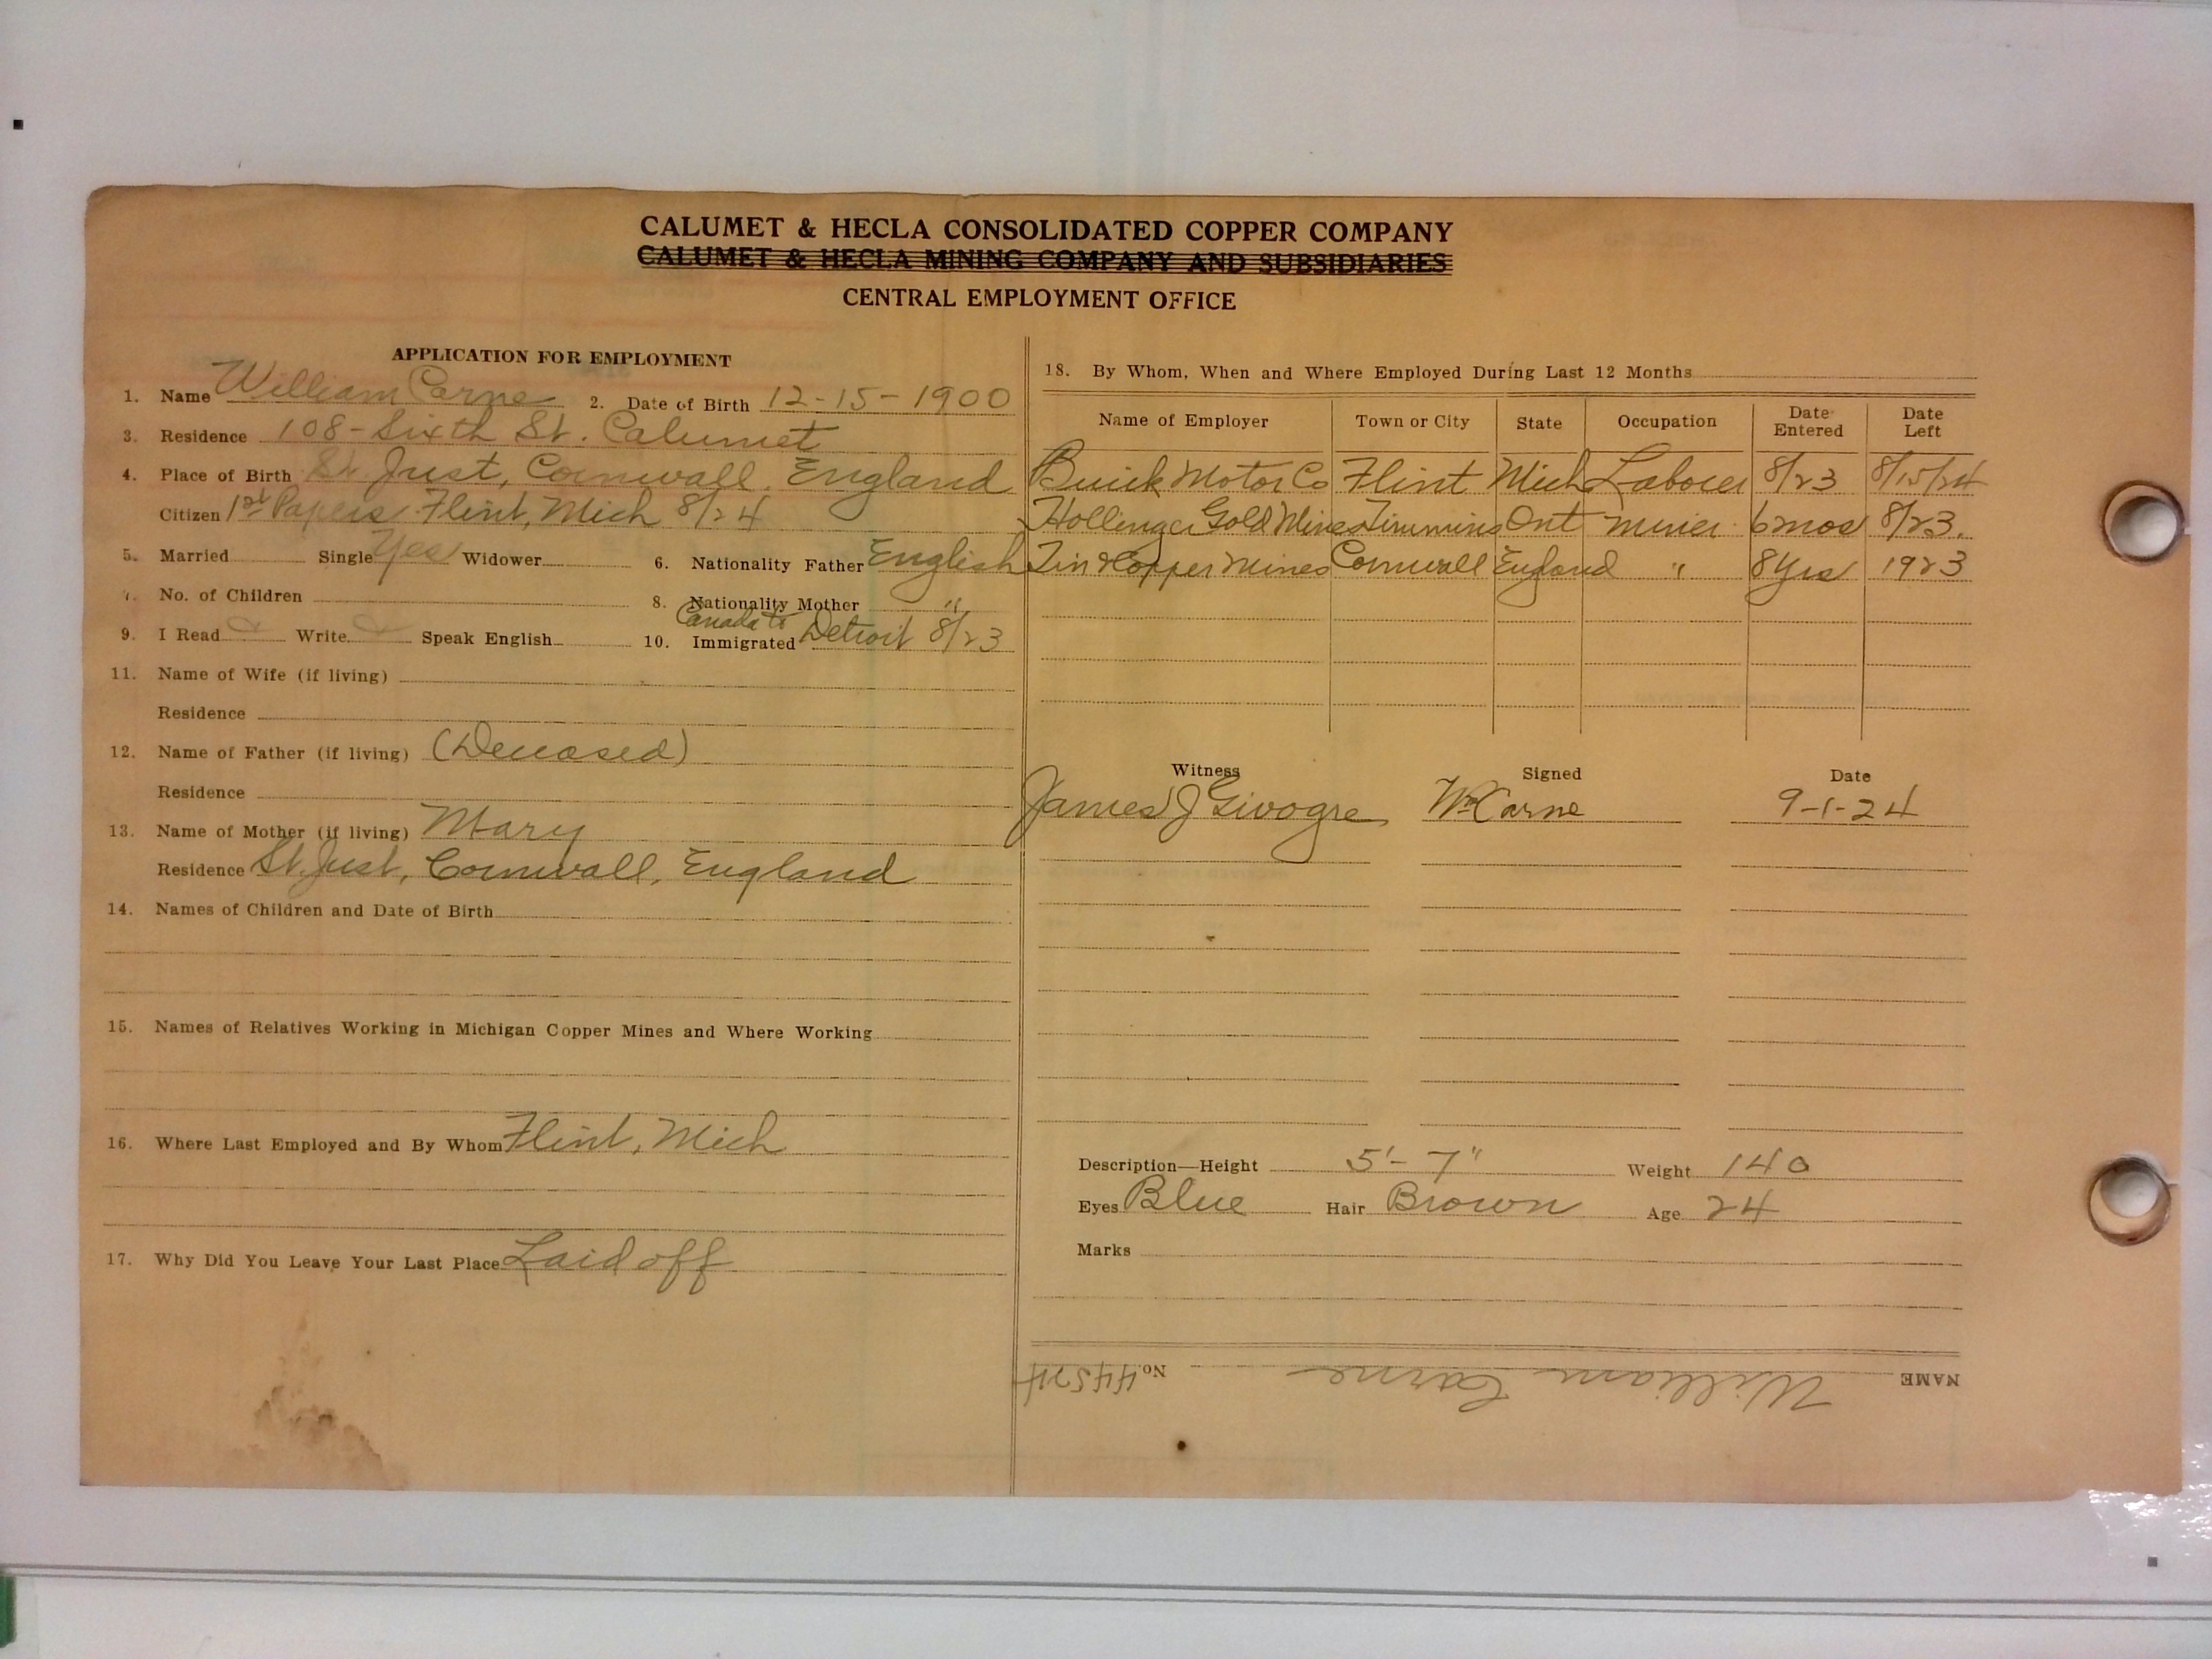 CALUMET & HECLA CONSOLIDATED COPPER COMPANY
CALUMET & HECLA MINING COMPANY AND SUBSIDIARIES
CENTRAL EMPLOYMENT OFFICE
APPLICATION FOR EMPLOYMENT
1. Name William Carne 2. Date of Birth 12-15-1900
3. Residence 108-Sixth St. Calumet
4. Place of Birth St. Just, Cornwall. England
Citizen 1st Papers Flint, Mich 8/24
5. Married Single Yes Widower 6. Nationality Father English
7. No. of Children 8. Nationality Mother "
9. I Read Write Speak English 10. Immigrated Canada to Detroit 8/23
11. Name of Wife (if living)
Residence
12. Name of Father (if living) (Deceased)
Residence
13. Name of Mother (if living) Mary
Residence St. Just, Cornwall, England
14. Names of Children and Date of Birth
15. Names of Relatives Working in Michigan Copper Mines and Where Working
16. Where Last Employed and By Whom Flint, Mich
17. Why Did You Leave Your Last Place Laid off
18. By Whom, When and Where Employed During Last 12 Months
Name of Employer Town or City State Occupation Date Entered Date Left
Buick Motor Co Flint Mich Laborer 8/23 8/15/24
Hollinger Gold Mines Timmins Ont Miner 6 mos 8/23.
Tin & Copper Mines Cornwall England " 8 Yrs 1923
Witness Signed Date
James J Givogre Wm Carne 9-1-24
Description—Height 5'-7" Weight 140
Eyes Blue Hair Brown Age 24
Marks
NAME William Carne No. 44574